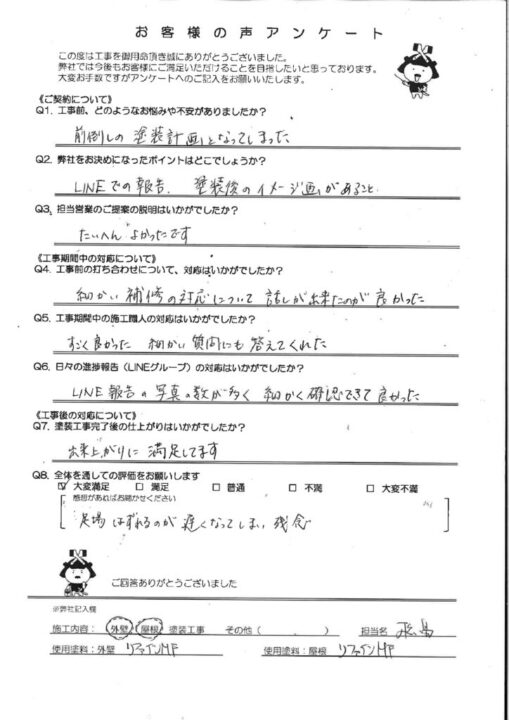 お客様の声アンケート
この度は工事を御用命頂き誠にありがとうございました。
弊社では今後もお客様にご満足いただけることを目指したいと思っております。
大変お手数ですがアンケートへのご記入をお願いいたします。
《ご契約について》
Q1. 工事前、どのようなお悩みや不安がありましたか?
前倒しの塗装計画となってしまった
Q2. 弊社をお決めになったポイントはどこでしょうか?
LINEでの報告、塗装後のイメージ画があること
Q3. 担当営業のご提案の説明はいかがでしたか?
たいへんよかったです
《工事期間中の対応について》
Q4. 工事前の打ち合わせについて、対応はいかがでしたか?
細かい補修の対応について話しが出来たのが良かった
Q5. 工事期間中の施工職人の対応はいかがでしたか?
すごく良かった 細かい質問にも答えてくれた
Q6. 日々の進捗報告(LINEグループ)の対応はいかがでしたか?
LINE報告の写真の数が多く細かく確認できて良かった
《工事後の対応について》
Q7. 塗装工事完了後の仕上がりはいかがでしたか?
出来上がりに満足してます
Q8. 全体を通しての評価をお願いします
☑ 大変満足 □ 満足 □ 普通 □ 不満 □ 大変不満
感想があればお聞かせください
足場はずれるのが遅くなってしまい残念
ご回答ありがとうございました
※弊社記入欄
施工内容: 外壁 屋根 塗装工事 その他( ) 担当名
使用塗料:外壁 リファインMF 使用塗料:屋根 リファインMF